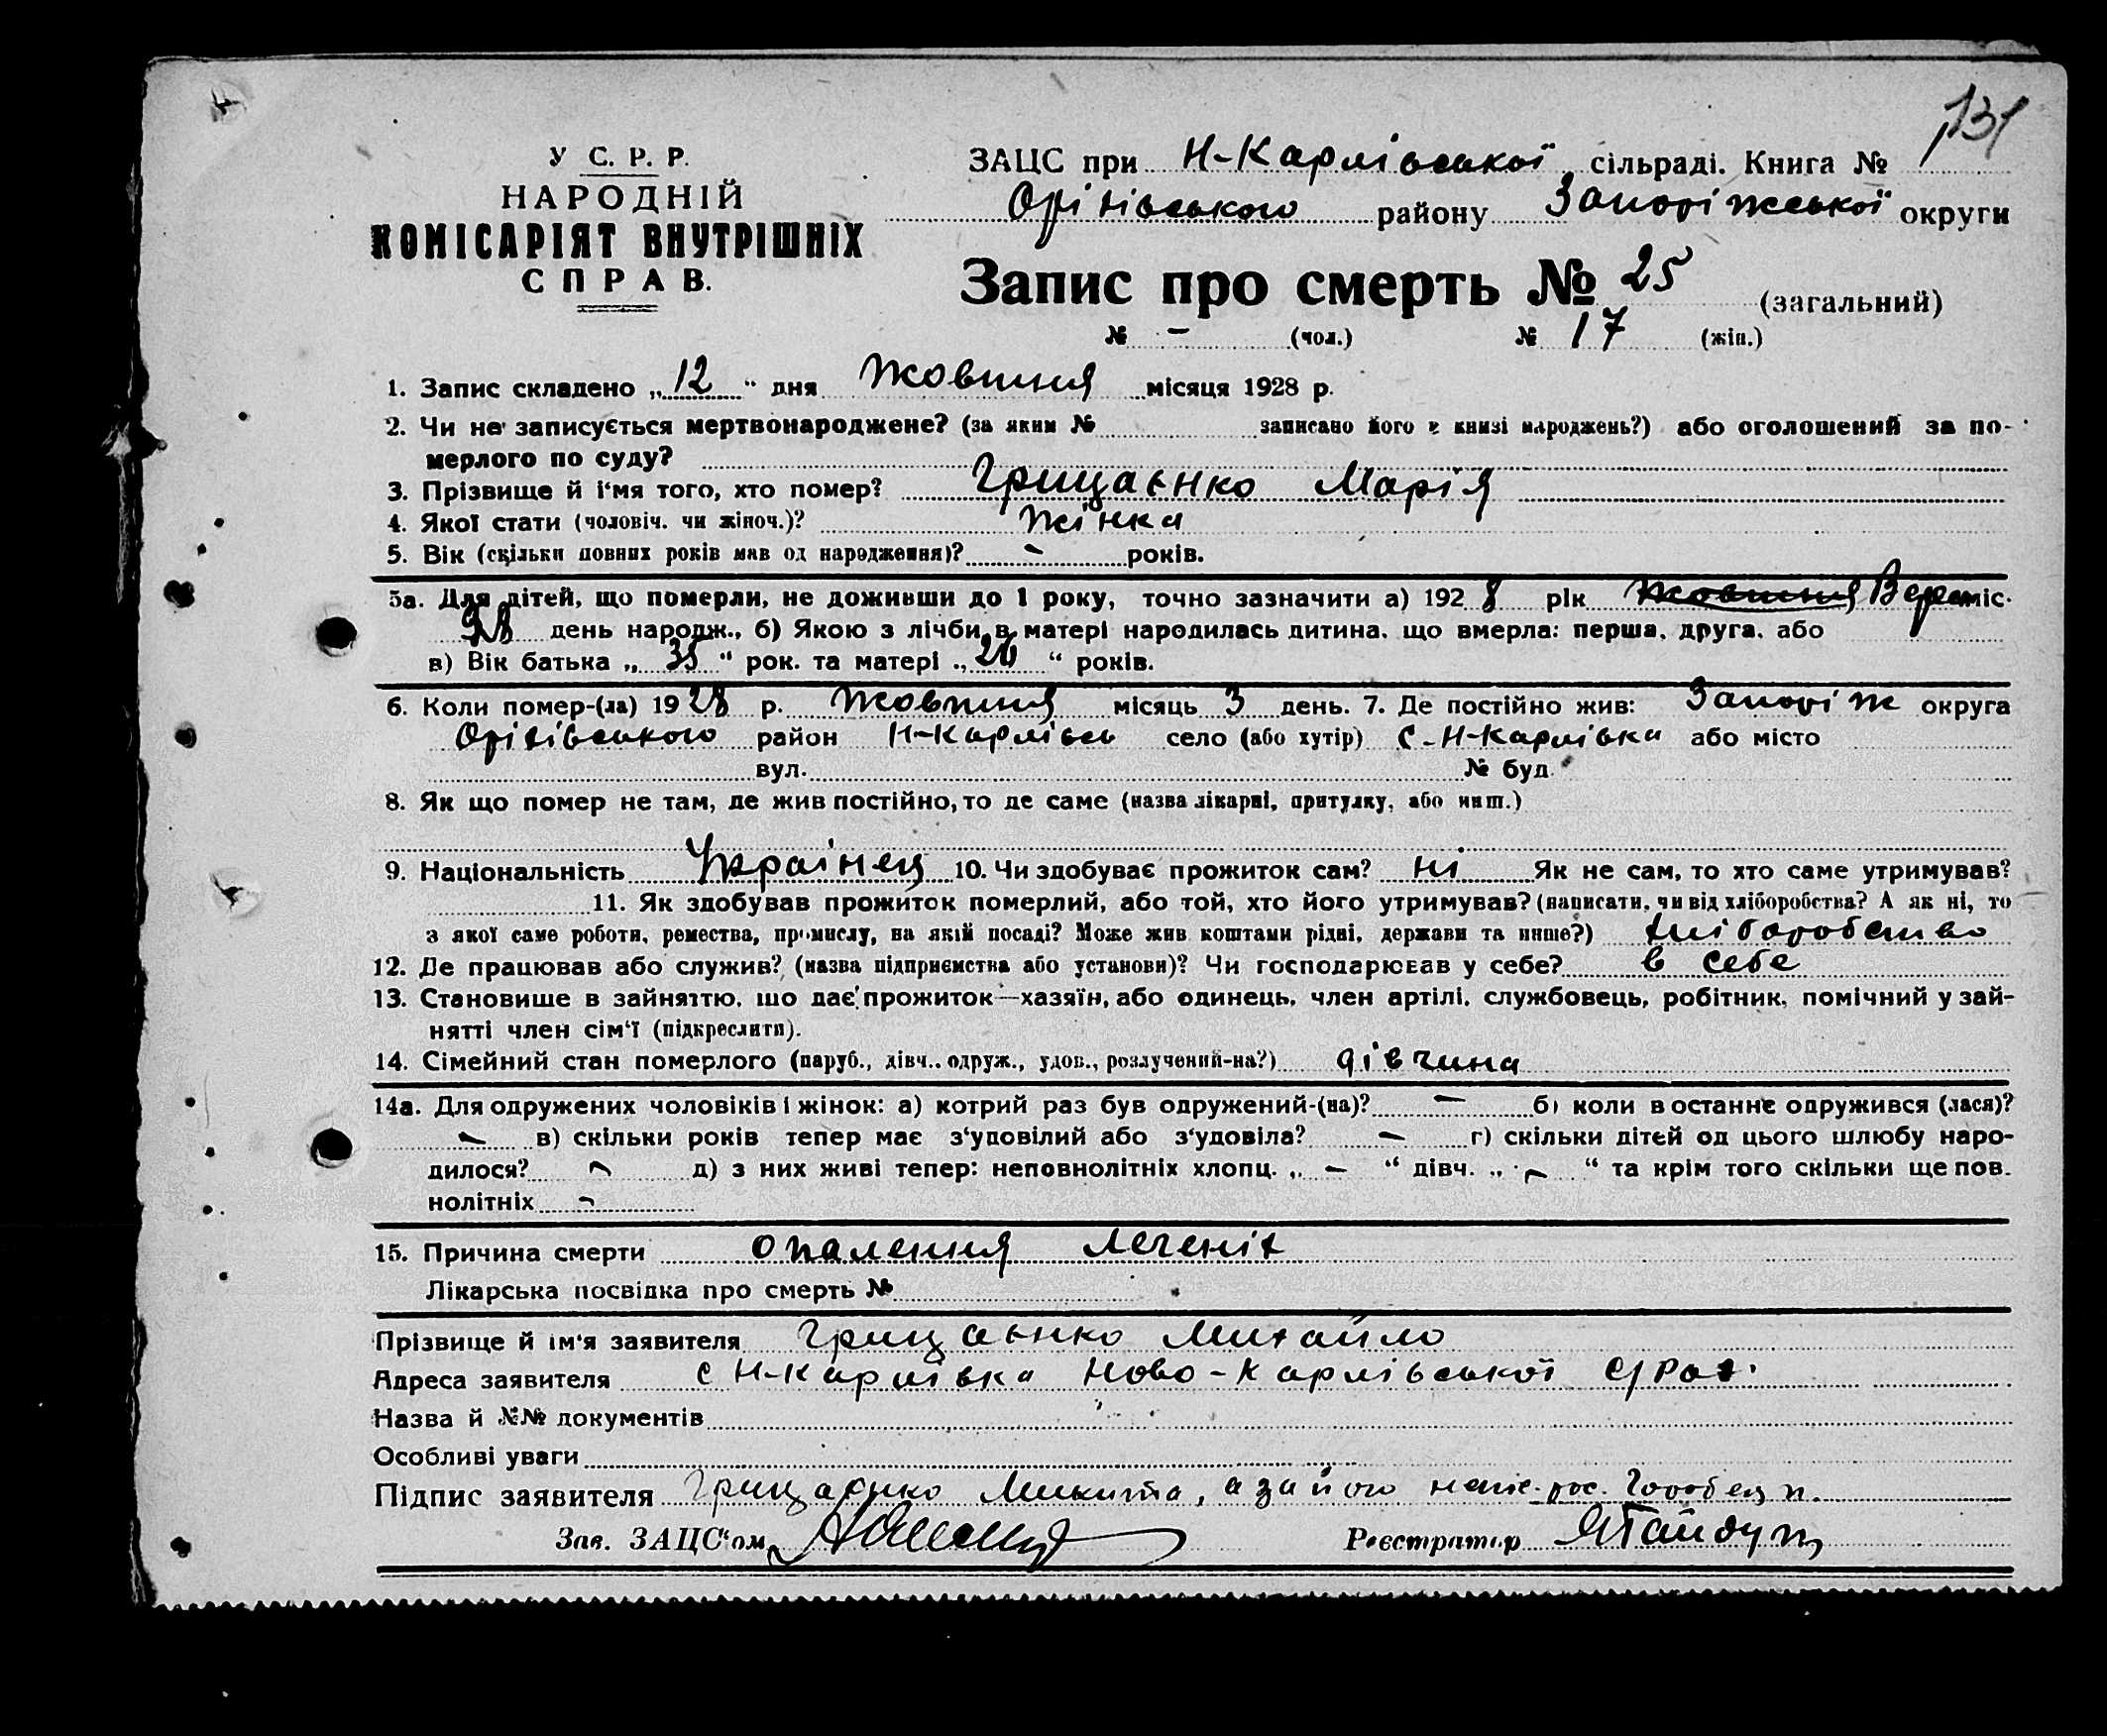 131
У С. Р. Р.
НАРОДНІЙ
КОМІСАРІЯТ ВНУТРІШНІХ
СПРАВ.
ЗАЦС при Н-Карлівської сільраді. Книга №
Оріхівського району Запоріжської округи
Запис про смерть № 25 (загальний)
№ - (чол.) № 17 (жін.)
1. Запис складено „12“ дня Жовтня місяця 1928 р.
2. Чи не записується мертвонароджене? (за яким № записано його в книзі народжень?) або оголошений за по-
мерлого по суду?
3. Прізвище й і‘мя того, хто помер? Грицаєнко Марія
4. Якої стати (чоловіч. чи жіноч.)? жінка
5. Вік (скільки повних років мав од народження)? - років.
5а. Для дітей, що померли, не доживши до 1 року, точно зазначити а) 1928 рік Жовтня Верес міс.
28 день народж., б) Якою з лічби в матері народилась дитина, що вмерла: перша, друга, або
в) Вік батька „35“ рок. та матері „“ років.
6. Коли помер-(ла) 1928 р. Жовтня місяць 3 день. 7. Де постійно жив: Запоріж округа
Оріхівського район Н-Карлівсь село (або хутір) с-Н-Карлівка або місто
вул. № буд.
8. Як що помер не там, де жив постійно, то де саме (назва лікарні, притулку, або инш.)
9. Національність Українец 10. Чи здобуває прожиток сам? ні Як не сам, то хто саме утримував?
11. Як здобував прожиток померлий, або той, хто його утримував? (написати, чи від хліборобства? А як ні, то
з якої саме роботи, ремества, промислу, на якій посаді? Може жив коштами рідні, держави та инше?) хліборобство
12. Де працював або служив? (назва підприємства або установи)? Чи господарював у себе? в себе
13. Становище в зайняттю, що дає прожиток—хазяїн, або одинець, член артілі, службовець, робітник, помічний у зай-
нятті член сім‘ї (підкреслити).
14. Сімейний стан померлого (паруб., дівч.. одруж., удов., розлучений-на?) дівчина
14а. Для одружених чоловіків і жінок: а) котрий раз був одружений-(на)? - б) коли в останнє одружився (лася)?
- в) скільки років тепер має з‘удовілий або з‘удовіла? - г) скільки дітей од цього шлюбу наро-
дилося? - д) з них живі тепер: неповнолітніх хлопц. „-“ дівч. „-“ та крім того скільки ще пов.
нолітніх -
15. Причина смерти опалення легеніх
Лікарська посвідка про смерть №
Прізвище й ім‘я заявителя Грицаєнко Михайло
Адреса заявителя с Н-Карлівка Ново-Карлівської с/рад.
Назва й №№ документів
Особливі уваги
Підпис заявителя Грицаєнко Микита, а за його непис. рос. Горобец п.
Зав. ЗАЦС‘ом Реєстратор